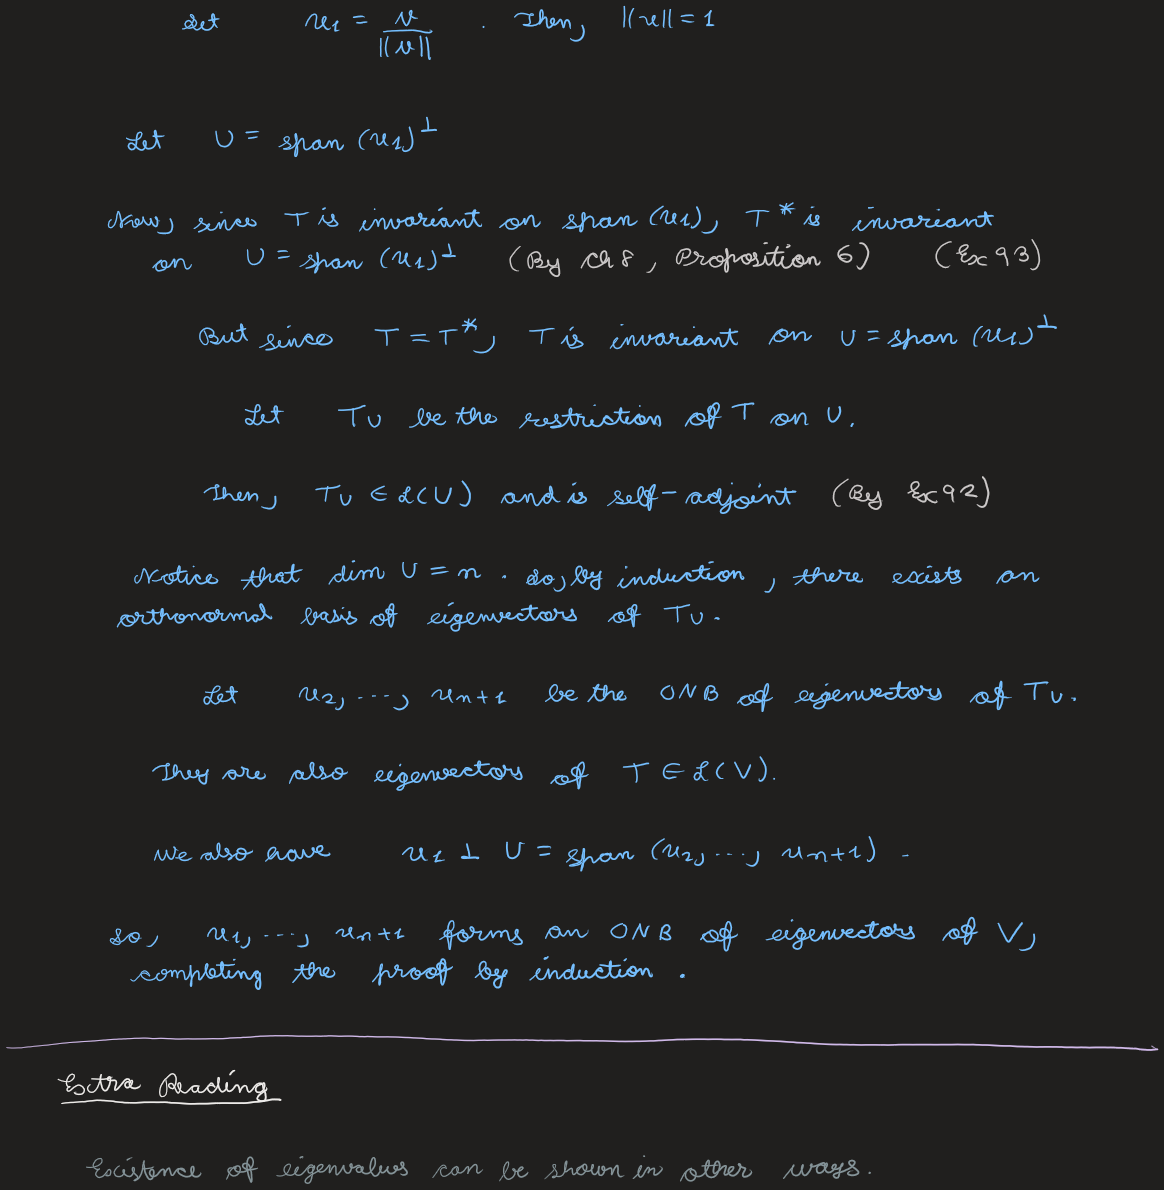 Set u1 = v / ||v|| . Then, ||u|| = 1
Let U = span (u1)⊥
Now, since T is invariant on span (u1), T* is invariant
on U = span (u1)⊥ (By Ch 8, Proposition 6) (Ex 93)
But since T = T*, T is invariant on U = span (u1)⊥
Let TU be the restriction of T on U.
Then, TU ∈ L(U) and is self-adjoint (By Ex 92)
Notice that dim U = n. So, by induction, there exists an
orthonormal basis of eigenvectors of TU.
Let u2, ..., un+1 be the ONB of eigenvectors of TU.
They are also eigenvectors of T ∈ L(V).
We also have u1 ⊥ U = span (u2, ..., un+1).
So, u1, ..., un+1 forms an ONB of eigenvectors of V,
completing the proof by induction.
Extra Reading
Existence of eigenvalues can be shown in other ways.